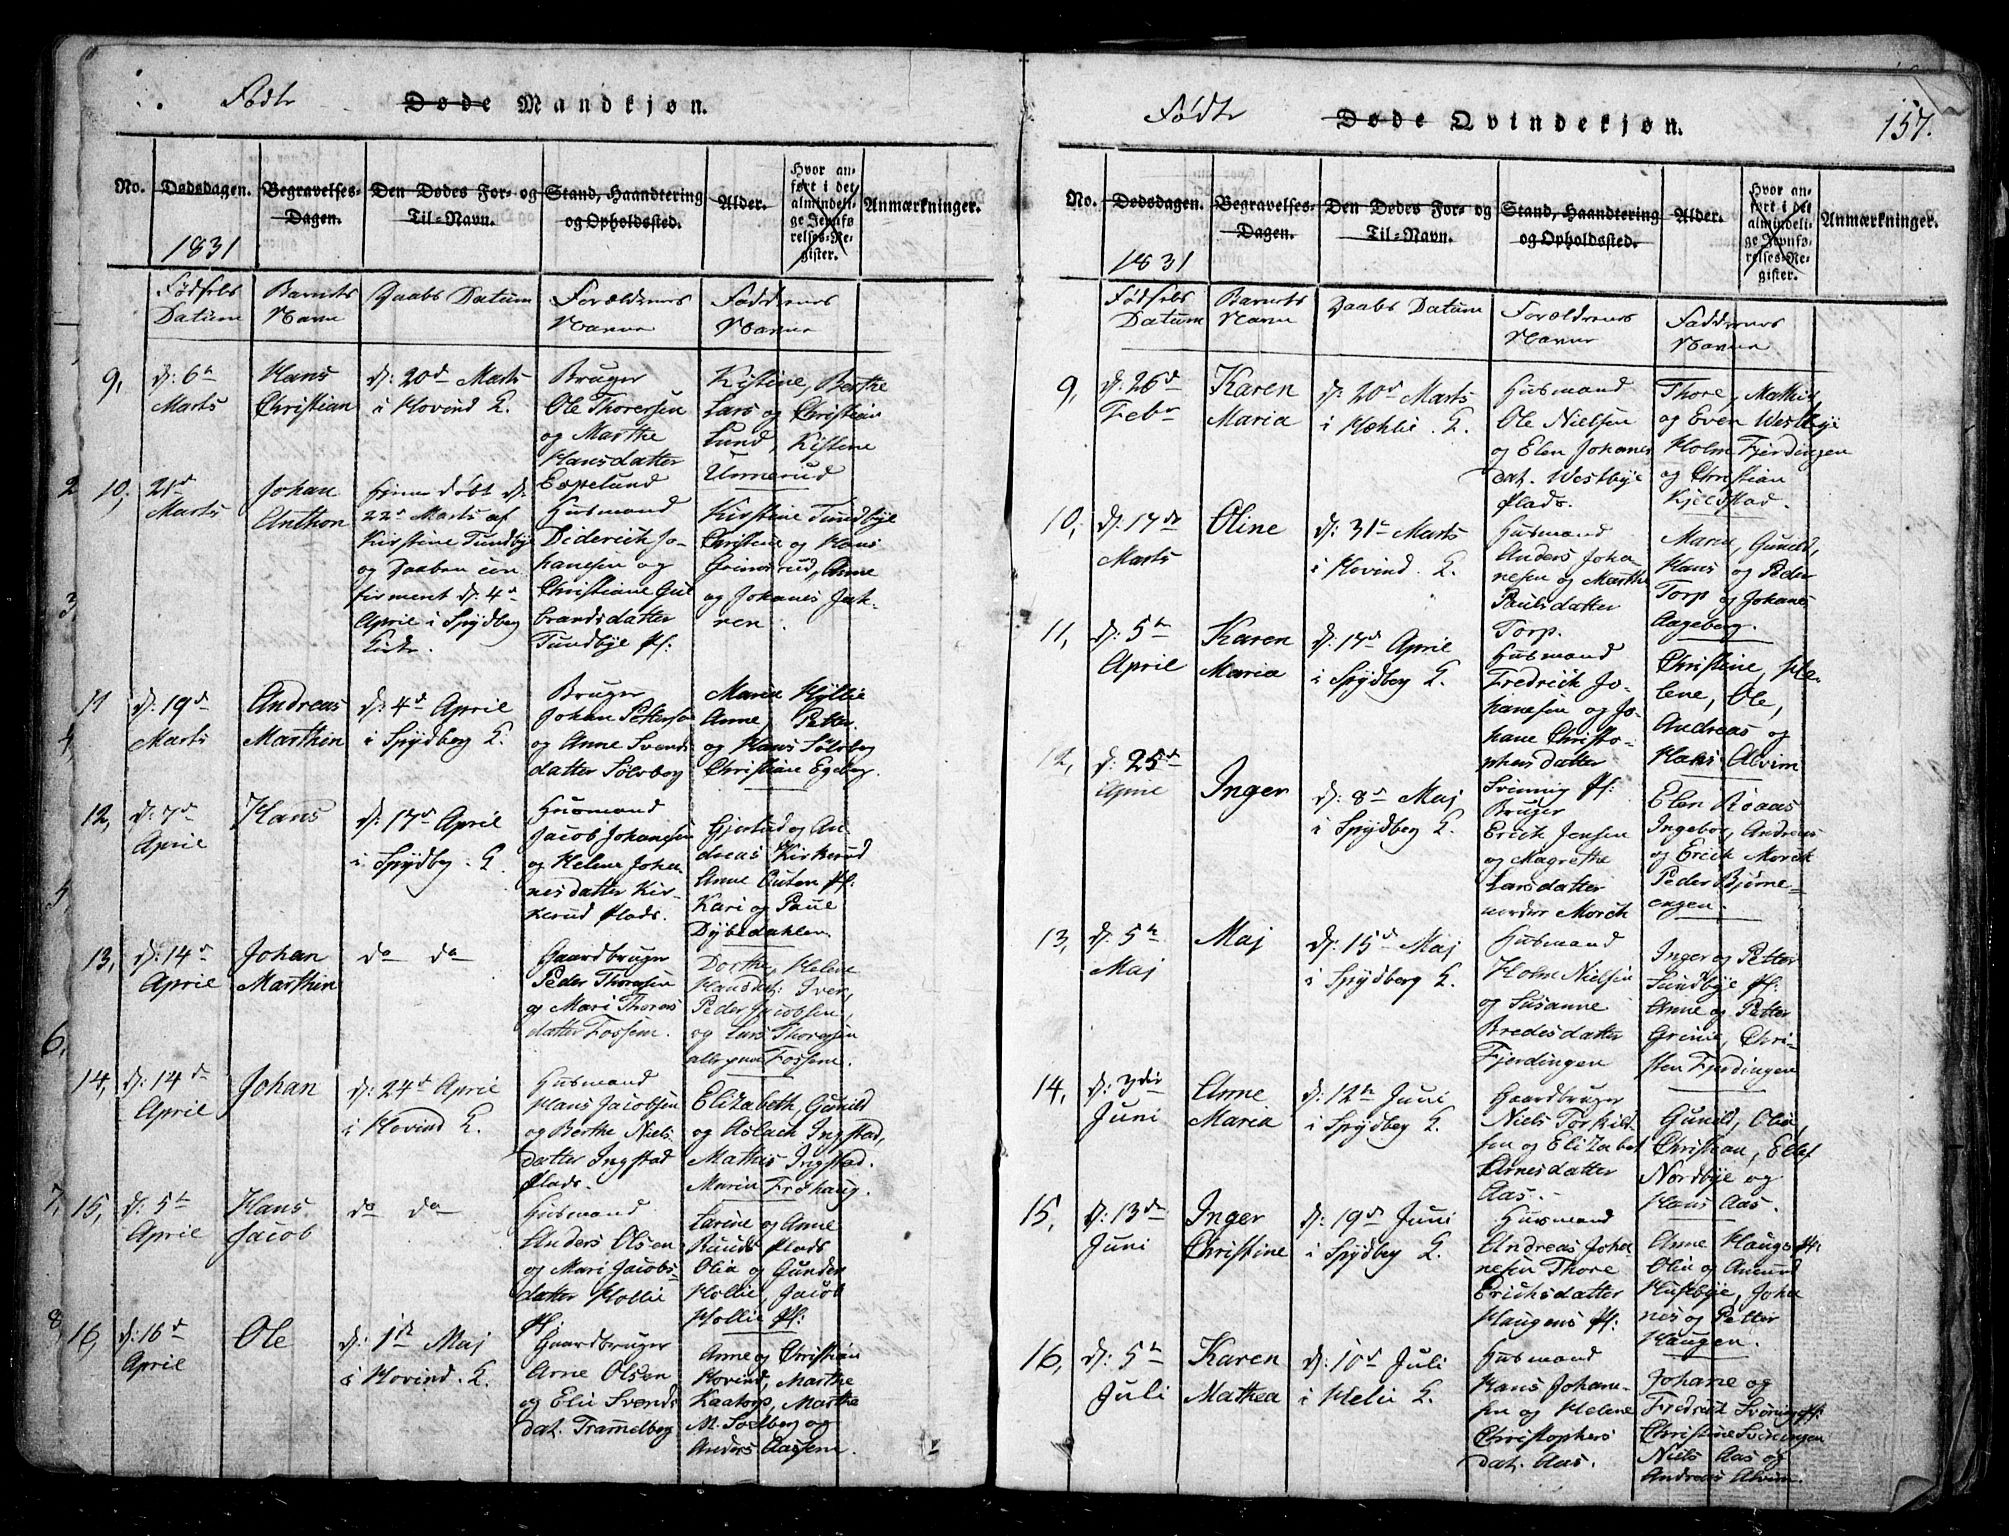 Födte Døde Mandkjøn.
No. Dødsdagen. Begravelses-Dagen. Den Dødes For- og Til-Navn. Stand, Haandtering og Opholdssted. Alder. Hvor anført i det almindelige Jevnførelses-Register. Anmærkninger.
1831
Födsels Datum Barnets Navn Daabs Datum Forældrenes Navne Faddernes Navne
9, d: 6te Marts
Hans Christian
d: 20de Marts i Hovind K.
Bruger
Ole Thorersen
og Marthe
Hansdatter
Espelund
Kistine, Berthe
Lars og Christian
Lund, Kistene
Unnerud
10, 21de Marts
Johan Anthon
hjemedøbt d:
22de Marts af
Kirstine Tundbye
og Daaben con
firmeret d: 4de
April i Spydberg
Kirke.
Husmand
Diderich Jo-
hanesen og
Christiane Gul
brandsdatter
Tundbye pl:
Kirstine Tundbye
Christine og Hans
Anne
og Johanes
11 d: 19de Marts
Andreas Marthin
d: 4de April
i Spydberg K.
Bruger
Johan Pettersen
og Anne Svends
datter Solberg
Maria Hyllie
Anne, Petter
og Hans Solberg
Christiane Egeberg.
12, d: 7de April
Hans
d: 17de April
i Spydbg. K.
Husmand
Jacob Johanesen
og Helene Joha
nesdatter Kir-
kerud Plads.
Gjertud og An
dreas Kirkerud
Anne Outen pl:
Kari og Paul
Dybedahlen
13, d: 14de April
Johan Marthin
do do
Gaardbruger
Peder Thoresen
og Mari Thores
datter Fossem.
Dorthe, Helene
Hansdat: Iver,
Peder Jacobsen,
og Lars Thoresen
alle paa Fossem.
14, d: 14de April
Johan
d: 24de April
i Hovind K.
Husmand
Hans Jacobsen
og Berthe Niels
datter Ingstad
Plads.
Elizabeth, Gunild
og Aslach Ingstad,
Mathis Ingstad.
Maria Frøhaug.
15, d: 5te April
Hans Jacob
do do
Husmand
Anders Olsen
og Mari Jacobs-
datter Hollie
pl.
Larine og Anne
Ruuds Plads
Olia og Gunder
Hollie, Jacob
Hollie pl:
16, d: 16de April
Ole
d: 1ste Maj
i Hovind. K.
Gaardbruger
Arne Olsen
og Elie Svends
dat. Trammelborg
Anne og Christian
Hovind, Marthe
Kaatorp, Marthe
M. Solberg og
Anders Aassem.
Födte Døde Qvindekjøn. 157.
No. Dødsdagen. Begravelses-Dagen. Den Dødes For- og Til-Navn. Stand, Haandtering og Opholdssted. Alder. Hvor anført i det almindelige Jevnførelses-Register. Anmærkninger.
1831
Födsels Datum Barnets Navn Daabs Datum Forældrenes Navne Faddernes Navne
9, d: 26de Febr
Karen Maria
d: 20de Marts
i Hæhlie. K.
Husmand
Ole Nielsen
og Elen Johanes
dat. Westbye
Plads.
Thore, Mathis,
og Even Westbye
Holm Fjerdingen
og Christian
Kjeldstad.
10, d: 17de Marts
Oline
d: 31te Marts
i Hovind. K.
Husmand
Anders Joha
nesen og Marthe
Paulsdatter
Torp.
Maren, Gunild,
Hans og Peder
Torp og Johanes
Aageberg.
11, d: 5te April
Karen Maria
d: 17de April
i Spydberg K.
Husmand
Fredrich Jo-
hanesen og Jo-
hane Christo-
phersdatter
Svinnig pl:
Christine, He-
lene, Ole,
Andreas og
Hans Alvim
12, d: 25de April
Inger
d: 8de Maj
i Spydbeg K.
Bruger
Erich Jensen
og Magrethe
Larsdatter
nordre Morch
Elen Roaas
Ingebor, Andreas
og Erich Morch
Peder Bjørne-
engen.
13, d: 5te Maj
Maj
d: 15de Maj
i Spydberg K.
Husmand
Holm Nielsen
og Susanne
Bredesdatter
Fjerdingen
Inger og Petter
Sundbye pl:
Anne og Petter
Grinie, Chri-
sten Fjerdingen
14, d: 3die Juni
Anne Maria
d: 12te Juni
i Spydbg K.
Gaardbruger
Niels Torkild-
sen og Elizabet
Arnesdatter
Aas.
Gunild, Olia,
Christian, Ellef
Nordbye og
Hans Aas.
15, d: 13de Juni
Inger Christine
d: 19de Juni
i Spydbg K.
Husmand
Andreas Joha
nesen Thore
Erichsdatter
Haugens pl:
Anne Haugs pl:
Olia og Amund
Husebye, Joha
nes og Petter
Haugen.
16, d: 5te Juli
Karen Mathea
d: 10de Juli
i Helie K.
Husmand
Hans Johane-
sen og Helene
Christophers
dat. Aas.
Johane og
Fredrich Svining pl:
Christine Svinningen
Niels Aas og
Andreas Alvim.
2
3,
4,
5,
6,
7,
8,